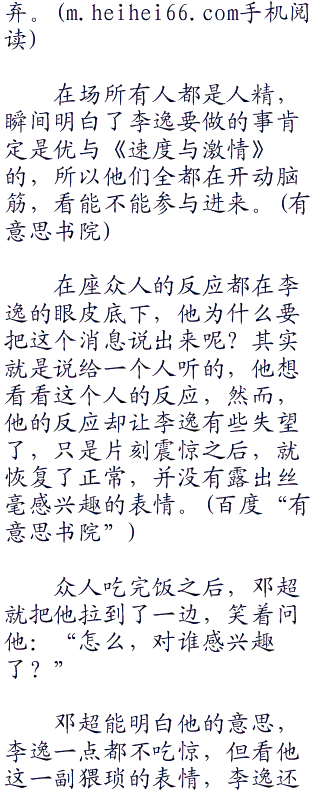 弃。(m.heihei66.com手机阅
读)
在场所有人都是人精，
瞬间明白了李逸要做的事肯
定是优与《速度与激情》
的，所以他们全都在开动脑
筋，看能不能参与进来。(有
意思书院)
在座众人的反应都在李
逸的眼皮底下，他为什么要
把这个消息说出来呢？其实
就是说给一个人听的，他想
看看这个人的反应，然而，
他的反应却让李逸有些失望
了，只是片刻震惊之后，就
恢复了正常，并没有露出丝
毫感兴趣的表情。(百度“有
意思书院”)
众人吃完饭之后，邓超
就把他拉到了一边，笑着问
他：“怎么，对谁感兴趣
了？”
邓超能明白他的意思，
李逸一点都不吃惊，但看他
这一副猥琐的表情，李逸还